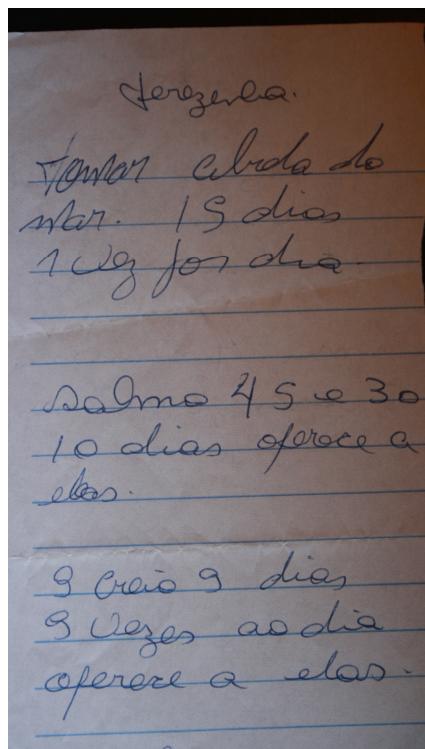 Terezinha.
Tomar cebola do
mar. 15 dias
1 vez por dia.
Salmo 45 e 30
10 dias oferece a
elas.
9 Creio 9 dias
9 vezes ao dia
oferece a elas.